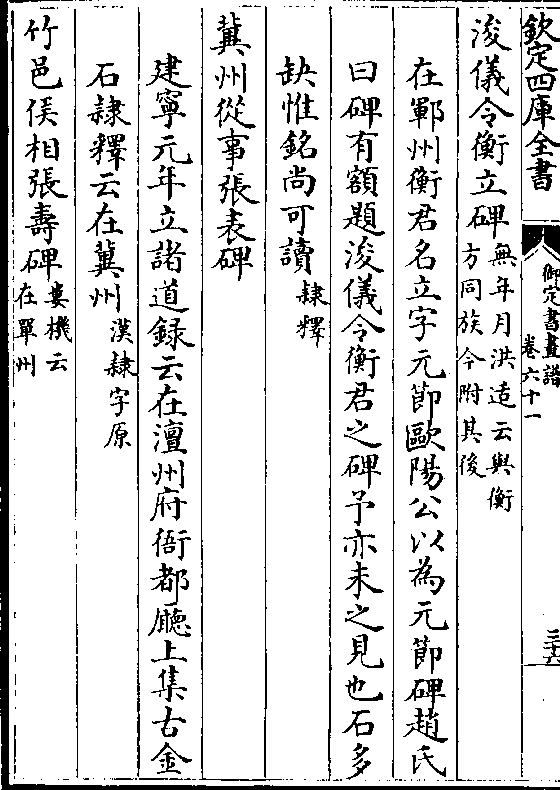 欽定四庫全書
御定書畫譜
卷六十一
三十六
浚儀令衡立碑
無年月洪适云與衡
方同族今附其後
在鄆州衡君名立字元節歐陽公以為元節碑趙氏
曰碑有額題浚儀令衡君之碑予亦未之見也石多
缺惟銘尚可讀
隸釋
冀州從事張表碑
建寧元年立諸道録云在澶州府衙都廳上集古金
石隸釋云在冀州
漢隸字原
竹邑侯相張壽碑
婁機云
在單州